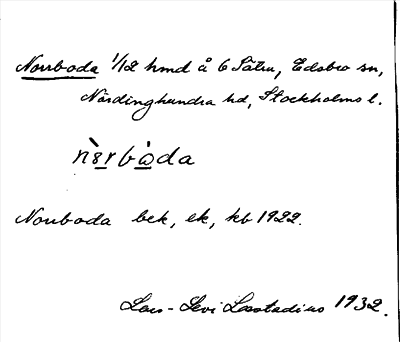 Norrboda 1/12 hmd å 6 Sätra, Edsbro sn,
Närdinghundra hd, Stockholms l.
nòrbòda
Norrboda bek, ek, kb 1922.
Lars-Levi Læstadius 1932.